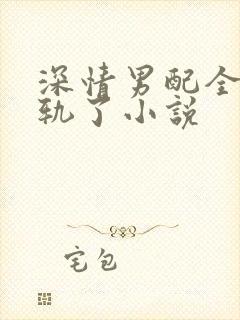 深情男配全
轨了小説
宅包